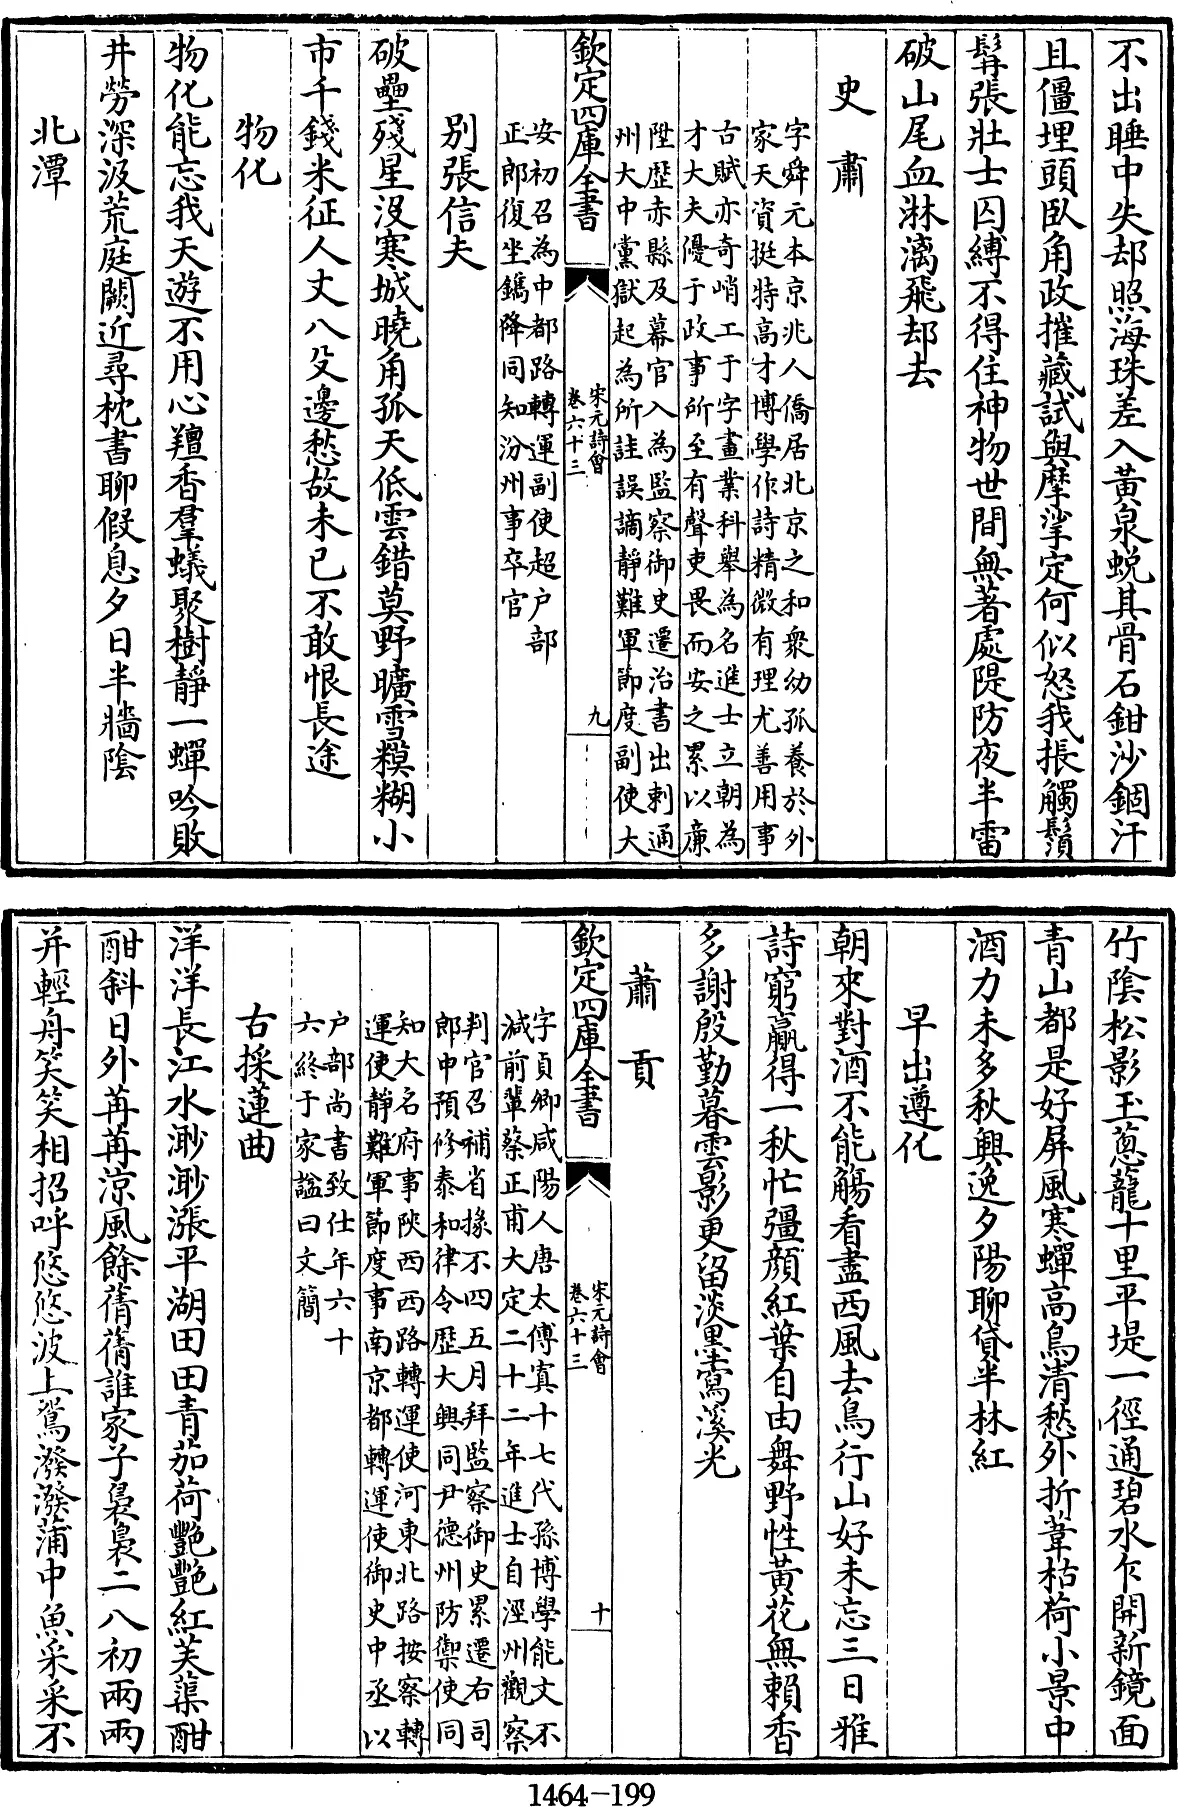 不出睡中失却照海珠差入黃泉蛻其骨石鉗沙錮汗
且僵埋頭臥角政摧藏試與摩挲定何似怒我掁觸鬚
髯張壯士囚縛不得住神物世間無著處隄防夜半雷
破山尾血淋漓飛却去
史肅
字舜元本京兆人僑居北京之和衆幼孤養於外
家天資挺特高才博學作詩精微有理尤善用事
古賦亦奇峭工于字畫業科舉為名進士立朝為
才大夫優于政事所至有聲吏畏而安之累以廉
陞歷赤縣及幕官入為監察御史遷治書出刺通
州大中黨獄起為所詿誤謫靜難軍節度副使大
欽定四庫全書
宋元詩會
卷六十三
九
安初召為中都路轉運副使超户部
正郎復坐鐫降同知汾州事卒官
別張信夫
破壘殘星没寒城曉角孤天低雲錯莫野曠雪糢糊小
市千錢米征人丈八殳邊愁故未已不敢恨長途
物化
物化能忘我天遊不用心羶香羣蟻聚樹靜一蟬吟敗
井勞深汲荒庭闕近尋枕書聊假息夕日半牆陰
北潭
竹陰松影玉蔥蘢十里平堤一徑通碧水乍開新鏡面
青山都是好屏風寒蟬高鳥清愁外折葦枯荷小景中
酒力未多秋興逸夕陽聊貸半林紅
早出遵化
朝來對酒不能觴看盡西風去鳥行山好未忘三日雅
詩窮贏得一秋忙彊顔紅葉自由舞野性黃花無賴香
多謝殷勤暮雲影更留淡墨寫溪光
蕭貢
欽定四庫全書
宋元詩會
卷六十三
十
字貞卿咸陽人唐太傅寘十七代孫博學能文不
減前輩蔡正甫大定二十二年進士自涇州觀察
判官召補省掾不四五月拜監察御史累遷右司
郎中預修泰和律令歷大興同尹德州防禦使同
知大名府事陜西西路轉運使河東北路按察轉
運使靜難軍節度事南京都轉運使御史中丞以
户部尚書致仕年六十
六終于家諡曰文簡
古採蓮曲
洋洋長江水渺渺漲平湖田田青茄荷艷艷紅芙蕖酣
酣斜日外苒苒涼風餘蒨蒨誰家子裊裊二八初兩兩
并輕舟笑笑相招呼悠悠波上鴛潑潑蒲中魚采采不
1464-199